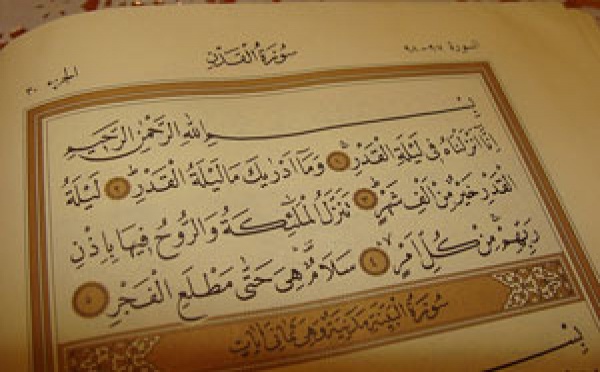 السورة ٩٧-٩٨ سُورَةُ الْقَدْرِ الجزء ٣٠
بِسْمِ اللهِ الرَّحْمٰنِ الرَّحِيمِ
اِنَّا اَنْزَلْنَاهُ فِى لَيْلَةِ الْقَدْرِ ١ وَمَا اَدْرٰيكَ مَا لَيْلَةُ الْقَدْرِ ٢ لَيْلَةُ
الْقَدْرِ خَيْرٌ مِنْ اَلْفِ شَهْرٍ ٣ تَنَزَّلُ الْمَلٰٓئِكَةُ وَالرُّوحُ فِيهَا بِاِذْنِ
رَبِّهِمْ مِنْ كُلِّ اَمْرٍ ٤ سَلَامٌ هِىَ حَتّٰى مَطْلَعِ الْفَجْرِ ٥
سُورَةُ الْبَيِّنَةِ مَدَنِيَّةٌ وَهِىَ ثَمَانِى اٰيَاتٍ
بِسْمِ